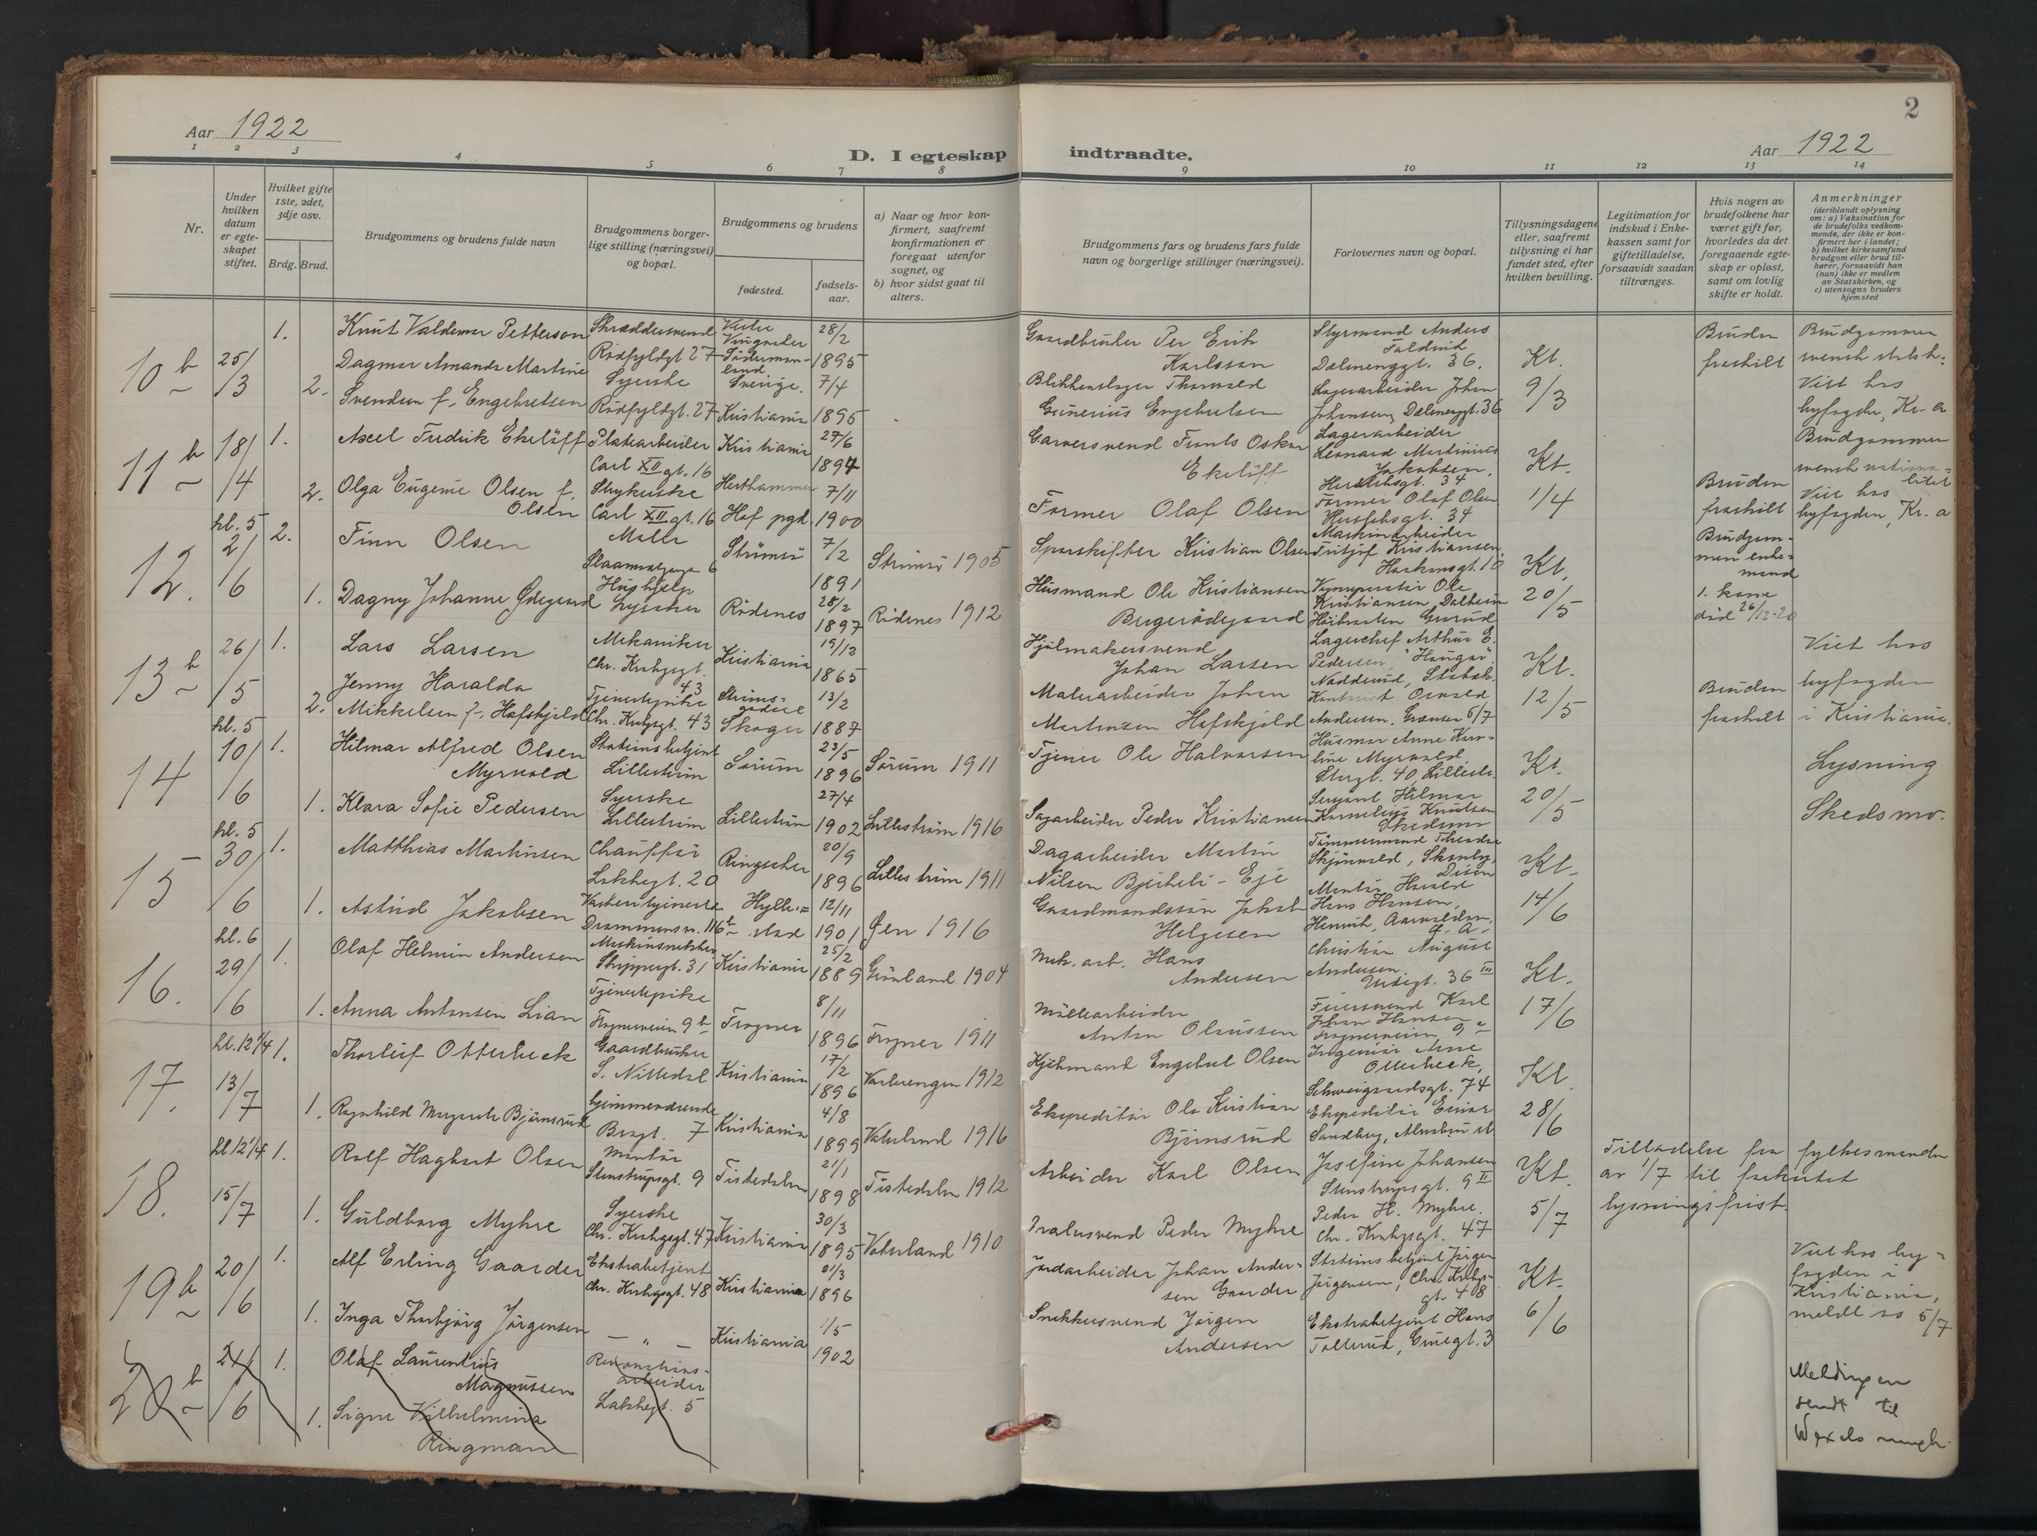 Aar 1922
2
Aar 1922
D. I egteskap indtraadte.
1 2 3 4 5 6 7 8 9 10 11 12 13 14
Nr.
Under hvilken datum er egteskapet stiftet.
Hvilket gifte 1ste, 2det, 3dje osv.
Brdg. Brud.
Brudgommens og brudens fulde navn
Brudgommens borgerlige stilling (næringsvei) og bopæl.
Brudgommens og brudens
fødested.
fødselsaar.
a) Naar og hvor konfirmert, saafremt konfirmationen er foregaat utenfor sognet, og
b) hvor sidst gaat til alters.
Brudgommens fars og brudens fars fulde navn og borgerlige stillinger (næringsvei).
Forlovernes navn og bopæl.
Tillysningsdagene eller, saafremt tillysning ei har fundet sted, efter hvilken bevilling.
Legitimation for indskud i Enkekassen samt for giftetilladelse, forsaavidt saadan tiltrænges.
Hvis nogen av brudefolkene har været gift før, hvorledes da det foregaaende egteskap er opløst, samt om lovlig skifte er holdt.
Anmerkninger
(deriblandt oplysning om: a) Vaksination for de brudefolks vedkommende, der ikke er konfirmert her i landet; b) hvilket kirkesamfund brudgom eller brud tilhører, forsaavidt han (hun) ikke er medlem av Statskirken, og c) utensogns bruders hjemsted
10 b 25/3 1. Knut Valdemar Petterson Skræddersvend Rødfyldgt 27 Vestre Vingaker Södermanland Sverige 28/2 1895 Gaardbruker Per Erik Karlsson Styrmand Anders Dælenenggt. 36. Kt. 9/3 Bruden fraskilt Brudgommen svensk statsb. Viet hos byfogden, Kr.a
2. Dagmar Amanda Martine Svendsen f. Engebretsen Syerske Rødfyldgt. 27 Kristiania 7/4 1895 Blikkenslager Thorvald Gunerius Engebretsen Lagerarbeider Johan Johansen, Dælenenggt. 36
11 b 18/4 1. Axel Fredrik Ekelöff Platearbeider Carl XII gt. 16 Kristiania 27/6 1897 Garversvend Frants Oskar Ekelöff Lagerarbeider Leonard Martinius Jakobsen, Herslebsgt. 34 Kt. 1/4 Bruden fraskilt Brudgommen svensk nationalitet Viet hos byfogden, Kr.a
2. Olga Eugenie Olsen f. Olsen Strykerske Carl XII gt. 16 Hof pgd. 7/11 1900 Former Olaf Olsen Former Olaf Olsen Herslebsgt. 34
12. kl. 5 2/6 2. Finn Olsen Strømsø 7/2 1891 Strømsø 1905 Sporskifter Kristian Olsen Maskinarbeider Fritjof Kristiansen, Haakonsgt. 10 Kt. 20/5 Brudgommen enkemand 1. kone død 26/12-20
1. Dagny Johanne Ødegaard Hushjelp Syerske Rødenes 28/2 1897 Rødenes 1912 Husmand Ole Kristiansen Ole Kristiansen, Dalheim
13 b 26/5 1. Lars Larsen Mekaniker Chr. Krohgsgt. 43 Kristiania 19/12 1865 Hjulmakersvend Johan Larsen Lagerchef Arthur E. Pedersen, "Haugar", Nadderud, Stabæk. Kt. 12/5 Bruden fraskilt Viet hos byfogden i Kristiania.
2. Jenny Haralda Mikkelsen f. Hafskjold Tjenestepike Chr. Krohgsgt. 43 Skoger 13/2 1887 Malerarbeider Johan Martenzen Hafskjold Kontorist Osvald Andersen, Grænsen 5/7
14 kl. 5 10/6 1. Hilmar Alfred Olsen Myrvold Stationsbetjent Lillestrøm Sørum 23/5 1896 Sørum 1911 Tjener Ole Halvorsen Husmor Anne Karoline Myrvold, Storgt. 40, Lillestr. Kt. 20/5 Lysning Skedsmo.
1. Klara Sofie Pedersen Syerske Lillestrøm Lillestrøm 27/4 1902 Lillestrøm 1916 Sagarbeider Peder Kristiansen Sersjant Hilmar Kornelius Knutsen Skedsmo
15 kl. 5 30/6 1. Matthias Martinsen Chauffør Lakkegt. 20 Ringsaker 20/9 1896 Lillestrøm 1911 Dagarbeider Martin Nilsen Bjerkeli-Eje Tømmermand Theodor Skjønvold, Kt. 14/6
1. Astrid Jakobsen Drammensv. 116 b Hyllestad 12/11 1901 Øen 1916 Gaardmandssøn Jakob Helgesen Montør Harald Hans Hansen,
16. kl. 6 29/6 1. Olaf Helmin Andersen Skippergt. 31 Kristiania 25/2 1889 Grønland 1904 Mek. arb. Hans Andersen Christian August Andersen, Urtegt. 36 III Kt. 17/6
1. Anna Antonsen Lian Tjenestepike Frognerveien 9 b Frogner 8/11 1896 Frogner 1911 Møllearbeider Anton Olaussen Feiersvend Karl Johan Hansen Frognerveien 9 c
17. kl. 12 1/4 13/7 1. Thorleif Otterbeck Gaardbruker S. Nittedal Kristiania 17/2 1896 Vaalerengen 1912 Kjøbmand Engebret Olsen Ingeniør Arne Otterbeck, Schweigaardsgt. 74 Kt. 28/6
1. Ragnhild Margrete Bjørnsrud hjemmeværende Borggt. 7 Kristiania 4/8 1899 Vaterland 1916 Ekspeditør Ole Kristian Bjørnsrud Ekspeditør Einar Sandberg,
18. kl 12 1/4 15/7 1. Rolf Hagbart Olsen Montør Stenstrupsgt. 9 Tistedalen 21/1 1898 Tistedalen 1912 Arbeider Karl Olsen Josefine Johansen Stenstrupsgt. 9 II Kt. 5/7 Tilladelse fra fylkesmanden av 1/7 til forkortet lysningsfrist.
1. Guldborg Myhre Syerske Chr. Krohgsgt. 47 Kristiania 30/3 1895 Vaterland 1910 Peder Myhre Peder H. Myhre, Chr. Krohgsgt. 47
19 b 20/6 1. Alf Erling Gaarder Ekstrabetjent Chr. Krohgsgt. 48 Kristiania 21/3 1896 Jordarbeider Johan Andersen Gaarder Stationsbetjent Jørgen Jørgensen, Chr. Krohgsgt. 48 Kt. 6/6 Viet hos byfogden i Kristiania, meldt os 5/7.
1. Inga Thorbjørg Jørgensen — „ — Kristiania 1/5 1902 Snekkersvend Jørgen Andersen Ekstrabetjent Hans Tollerud, Gruegt. 3
20 b 24/6 1. Olaf Laurentius Magnussen Lakkegt. 5 Meldingen sendt til
1. Signe Vilhelmina Ringman